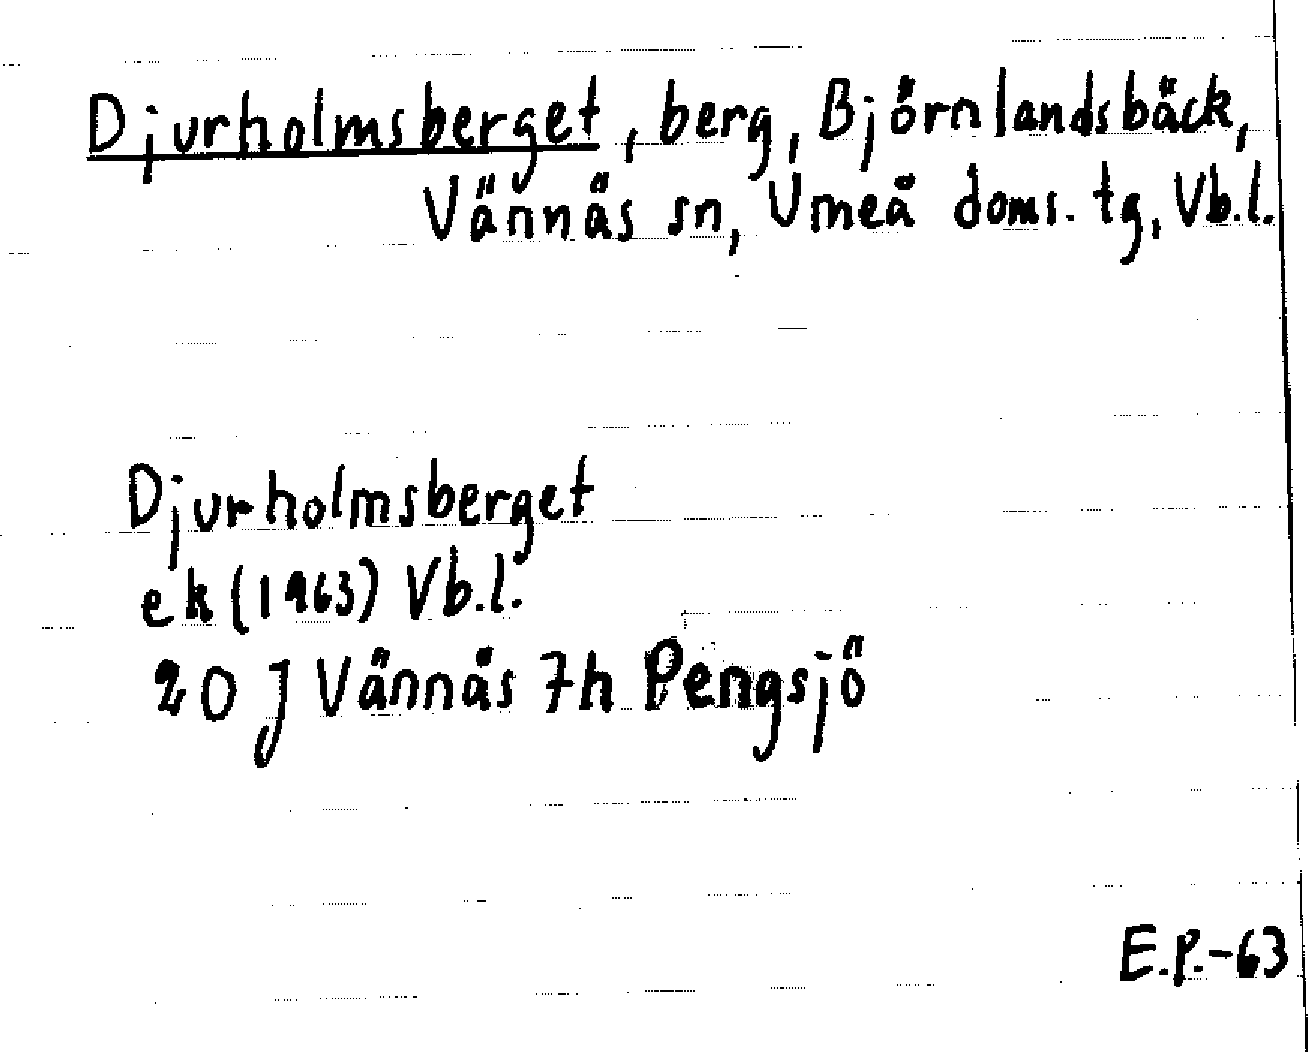 Djurholmsberget, berg, Björnlandsbäck,
Vännäs sn, Umeå doms. tg, Vb.l.
Djurholmsberget
ek (1963) Vb.l.
20 J Vännäs 7h Pengsjö
E.P.-63